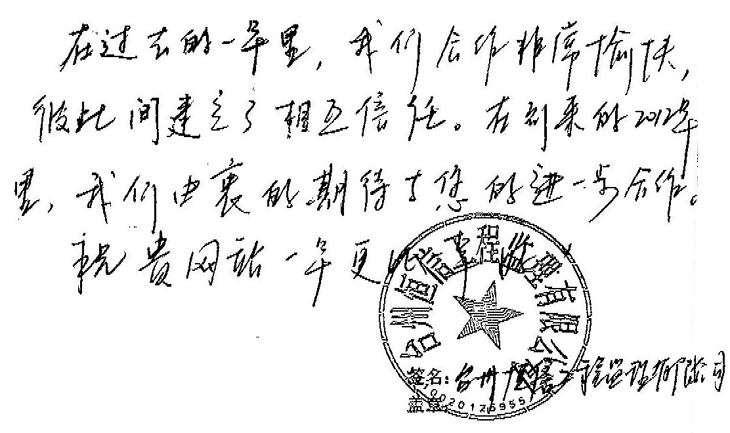 在过去的一年里，我们合作非常愉快，
彼此间建立了相互信任。在到来的2012年
里，我们由衷的期待与您的进一步合作。
祝贵网站一年更比一年
台州恒信工程监理有限公司
签名：台州恒信工程监理有限公司
盖章